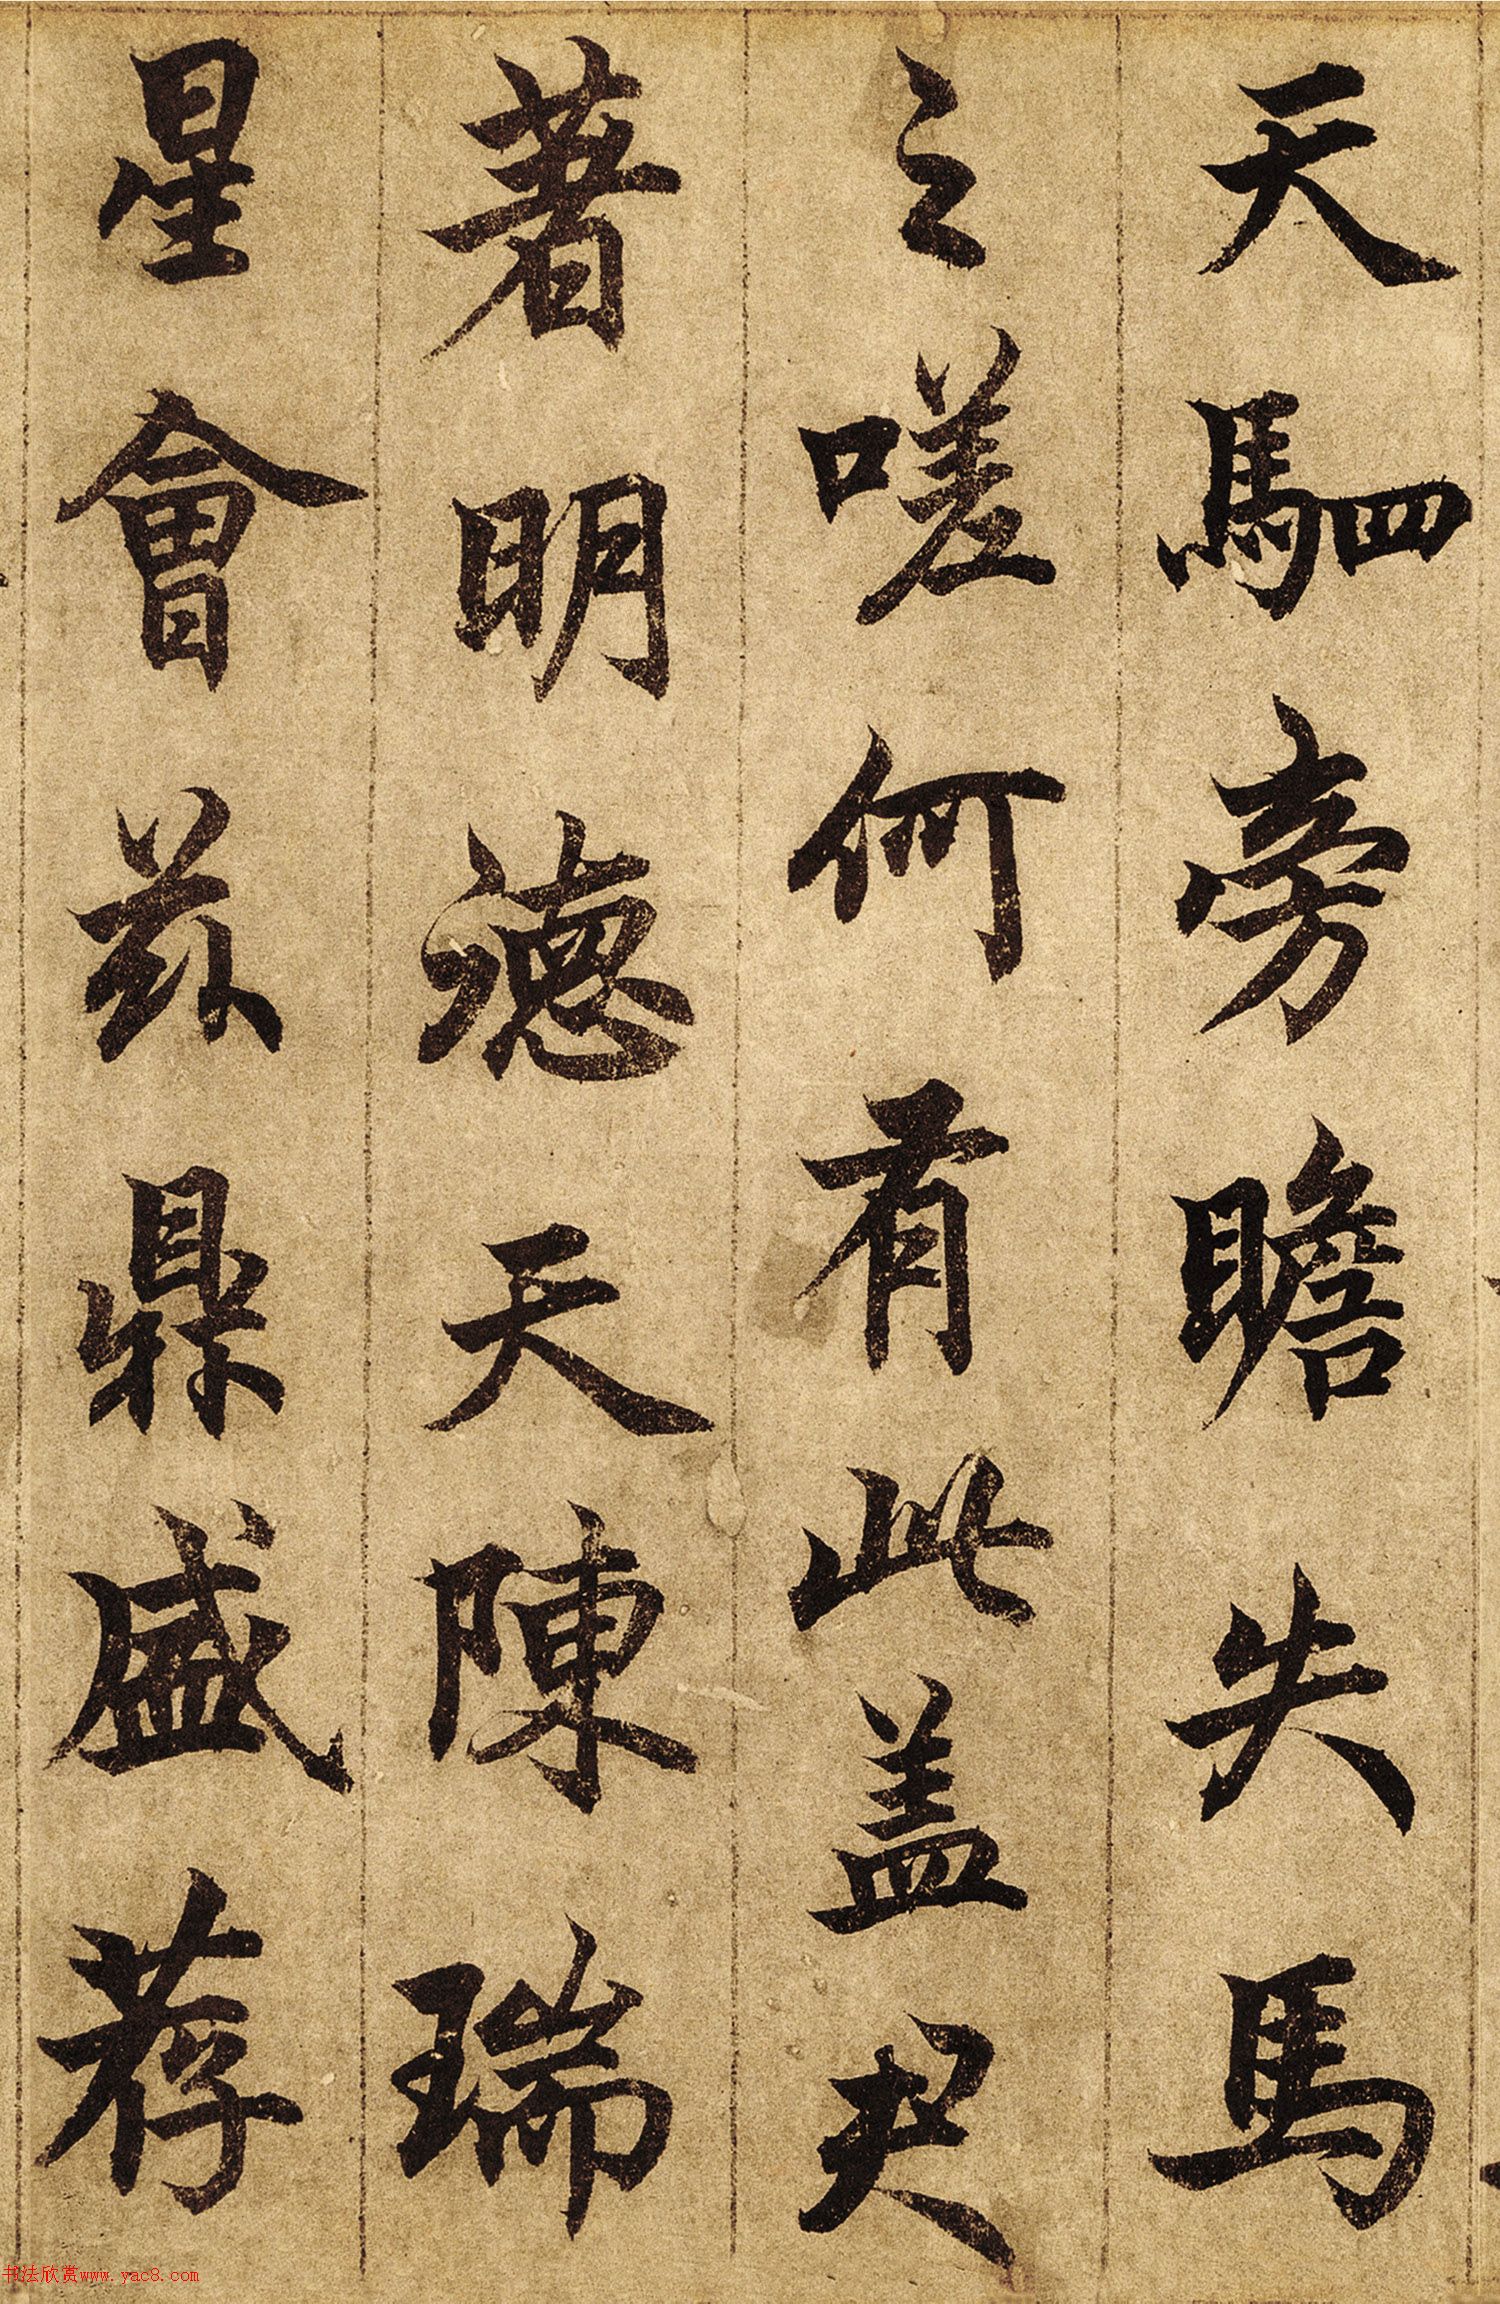 天駟旁瞻失馬
之嗟何有此盖
著明德天陳瑞
星會茲鼎盛荐
书法欣赏www.yac8.com